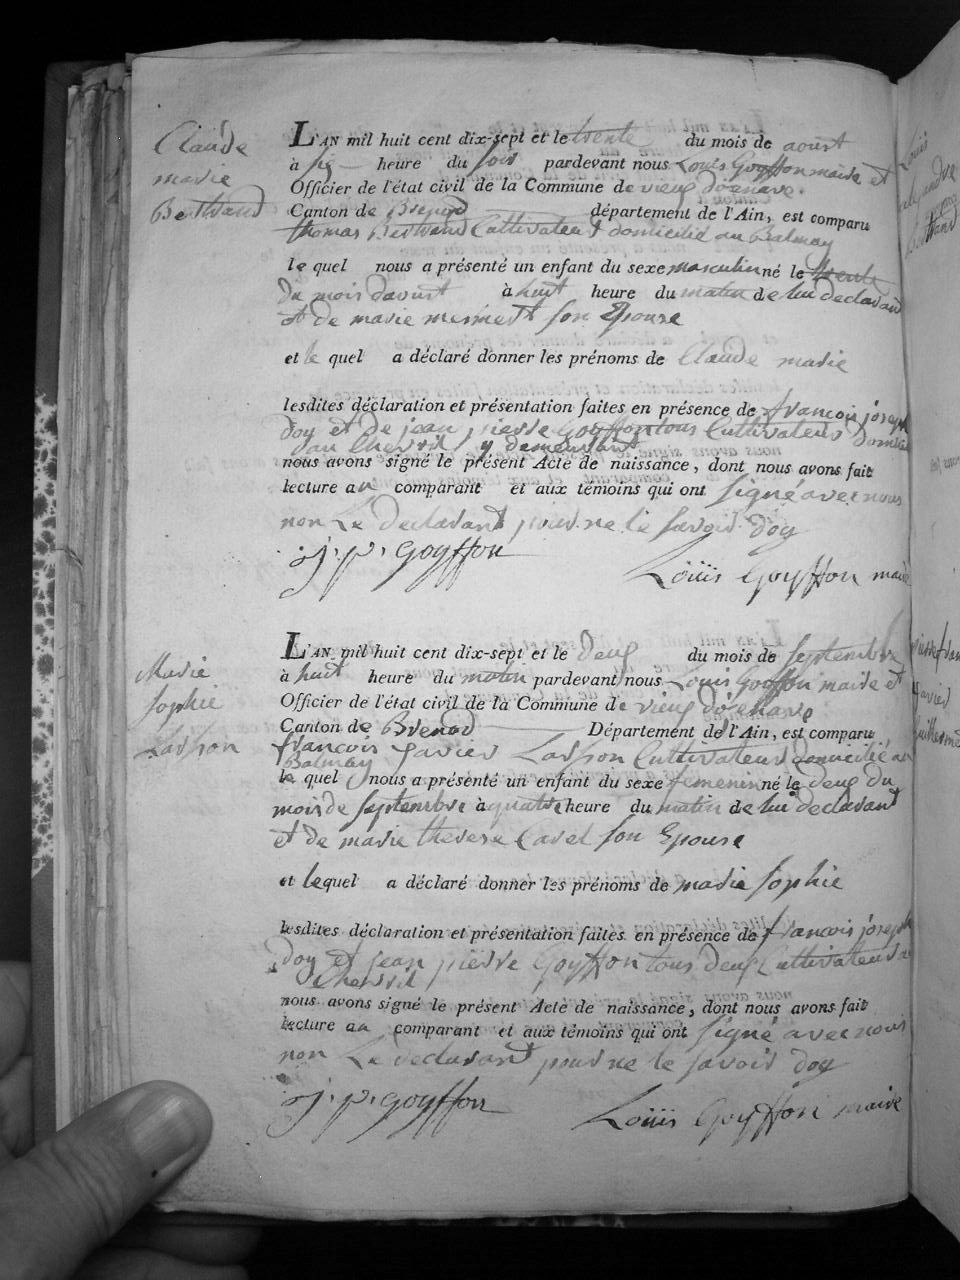 Claude
marie
Bertrand
L'AN mil huit cent dix-sept et le trente du mois de aoust
à six heure du soir pardevant nous Louis Goyffon maire et
Officier de l'état civil de la Commune de vieux d'izenave.
Canton de Brenod département de l'Ain, est comparu
thomas Bertrand Cultivateur domicilié au Balmay
le quel nous a présenté un enfant du sexe masculin né le trente
du mois d'aoust à huit heure du matin de lui declarant
et de marie mermet son Epouse
et le quel a déclaré donner les prénoms de Claude marie
lesdites déclaration et présentation faites en présence de francois joseph
doy et de jean pierre Goyffon tous Cultivateurs
y demeurant
nous avons signé le présent Acte de naissance, dont nous avons fait
lecture au comparant et aux témoins qui ont signé avec nous
non Le declarant pour ne le savoir doy
j. p. goyffon
Loüis Goyffon maire
Marie
sophie
Lasson
L'AN mil huit cent dix-sept et le deux du mois de septembre
à huit heure du matin pardevant nous Louis Goyffon maire et
Officier de l'état civil de la Commune de vieux d'izenave
Canton de Brenod Département de l'Ain, est comparu
francois xavier Lasson Cultivateur domicilié au
Balmay
le quel nous a présenté un enfant du sexe femenin né le deux du
mois de septembre à quatre heure du matin de lui declarant
et de marie therese Cavet son Epouse
et lequel a déclaré donner les prénoms de marie sophie
lesdites déclaration et présentation faites en présence de francois joseph
doy et jean pierre Goyffon tous deux Cultivateurs
nous avons signé le présent Acte de naissance, dont nous avons fait
lecture au comparant et aux témoins qui ont signé avec nous
non Le declarant pour ne le savoir doy
j. p. goyffon
Loüis Goyffon maire